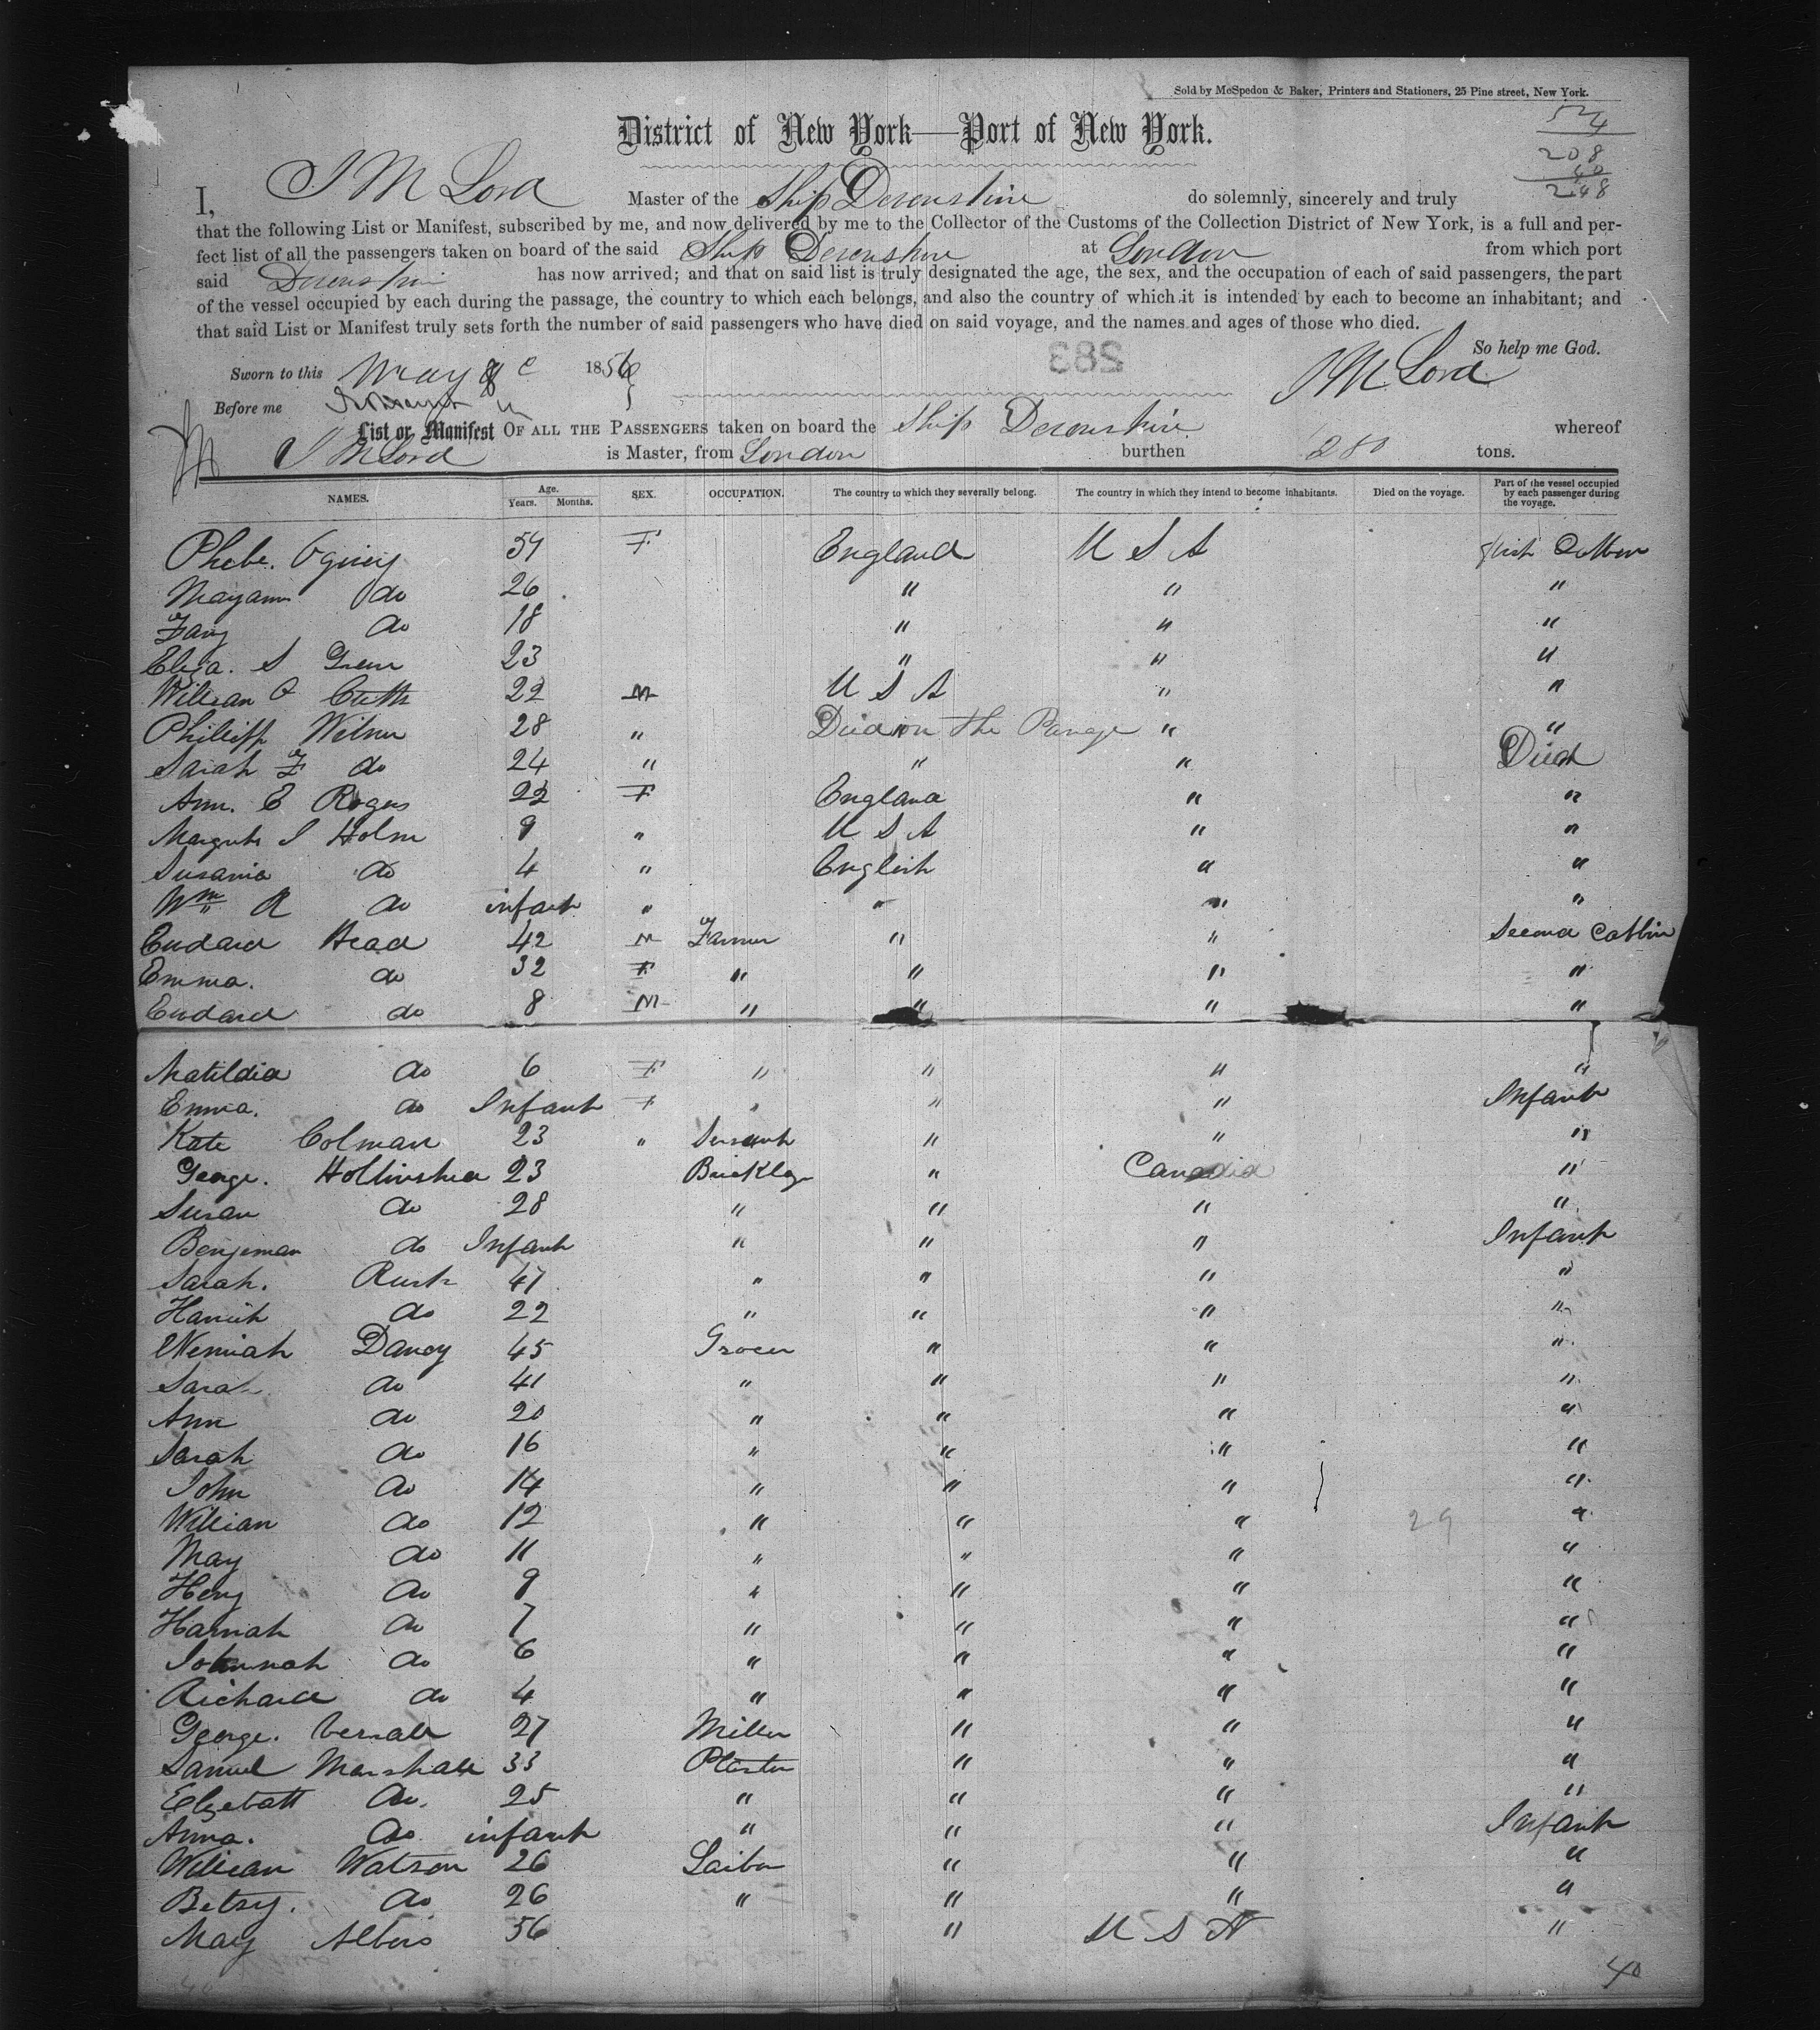 Sold by McSpedon & Baker, Printers and Stationers, 25 Pine street, New York.
District of New York—Port of New York.
524
208
40
248
I, J M Lord Master of the Ship Devonshire do solemnly, sincerely and truly
that the following List or Manifest, subscribed by me, and now delivered by me to the Collector of the Customs of the Collection District of New York, is a full and per-
fect list of all the passengers taken on board of the said Ship Devonshire at London from which port
said Devonshire has now arrived; and that on said list is truly designated the age, the sex, and the occupation of each of said passengers, the part
of the vessel occupied by each during the passage, the country to which each belongs, and also the country of which it is intended by each to become an inhabitant; and
that said List or Manifest truly sets forth the number of said passengers who have died on said voyage, and the names and ages of those who died.
So help me God.
Sworn to this May 1856 J M Lord
283
Before me
List or Manifest OF ALL THE PASSENGERS taken on board the Ship Devonshire whereof
J M Lord is Master, from London burthen 280 tons.
NAMES. Age. Years. Months. SEX. OCCUPATION. The country to which they severally belong. The country in which they intend to become inhabitants. Died on the voyage. Part of the vessel occupied by each passenger during the voyage.
Phebe. 54 F England U S A first Cabbin
Mayann do 26 " " "
Fany do 18 " " "
Eliza. S Green 23 " " "
William Cutts 22 M U S A " "
Phillipp Wilson 28 " Died on the Passage " "
Sarah F do 24 " " " Died
Ann. E Rogers 22 F England " "
I Holm 9 " U S A " "
Susania do 4 " English " "
Wm R do infant " " " "
Edward Head 42 M Farmer " " Second Cabbin
Emma. do 32 F " " " "
Edward do 8 M " " " "
Matildia do 6 F " " " "
Emma. do Infant F " " " Infant
Kate Colman 23 " Servant " " "
George. Hollinshea 23 Bricklay " Canadia "
Susan do 28 " " " "
Benjeman do Infant " " " Infant
Sarah. Rush 47 " " " "
do 22 " " " "
Nemiah Dancy 45 Grocer " " "
Sarah do 41 " " " "
Ann do 20 " " " "
Sarah do 16 " " " "
John do 14 " " " "
William do 12 " " " 29 "
May do 11 " " " "
Heny do 9 " " " "
Hannah do 7 " " " "
Johnnah do 6 " " " "
Richard do 4 " " " "
George. 27 Miller " " "
Samuel Marshall 33 Plaster " " "
Elizebatt do. 25 " " " "
Anna. do infant " " " Infant
William Watson 26 Laibor " " "
Betsy. do 26 " " " "
May Albors 56 " U S A "
40